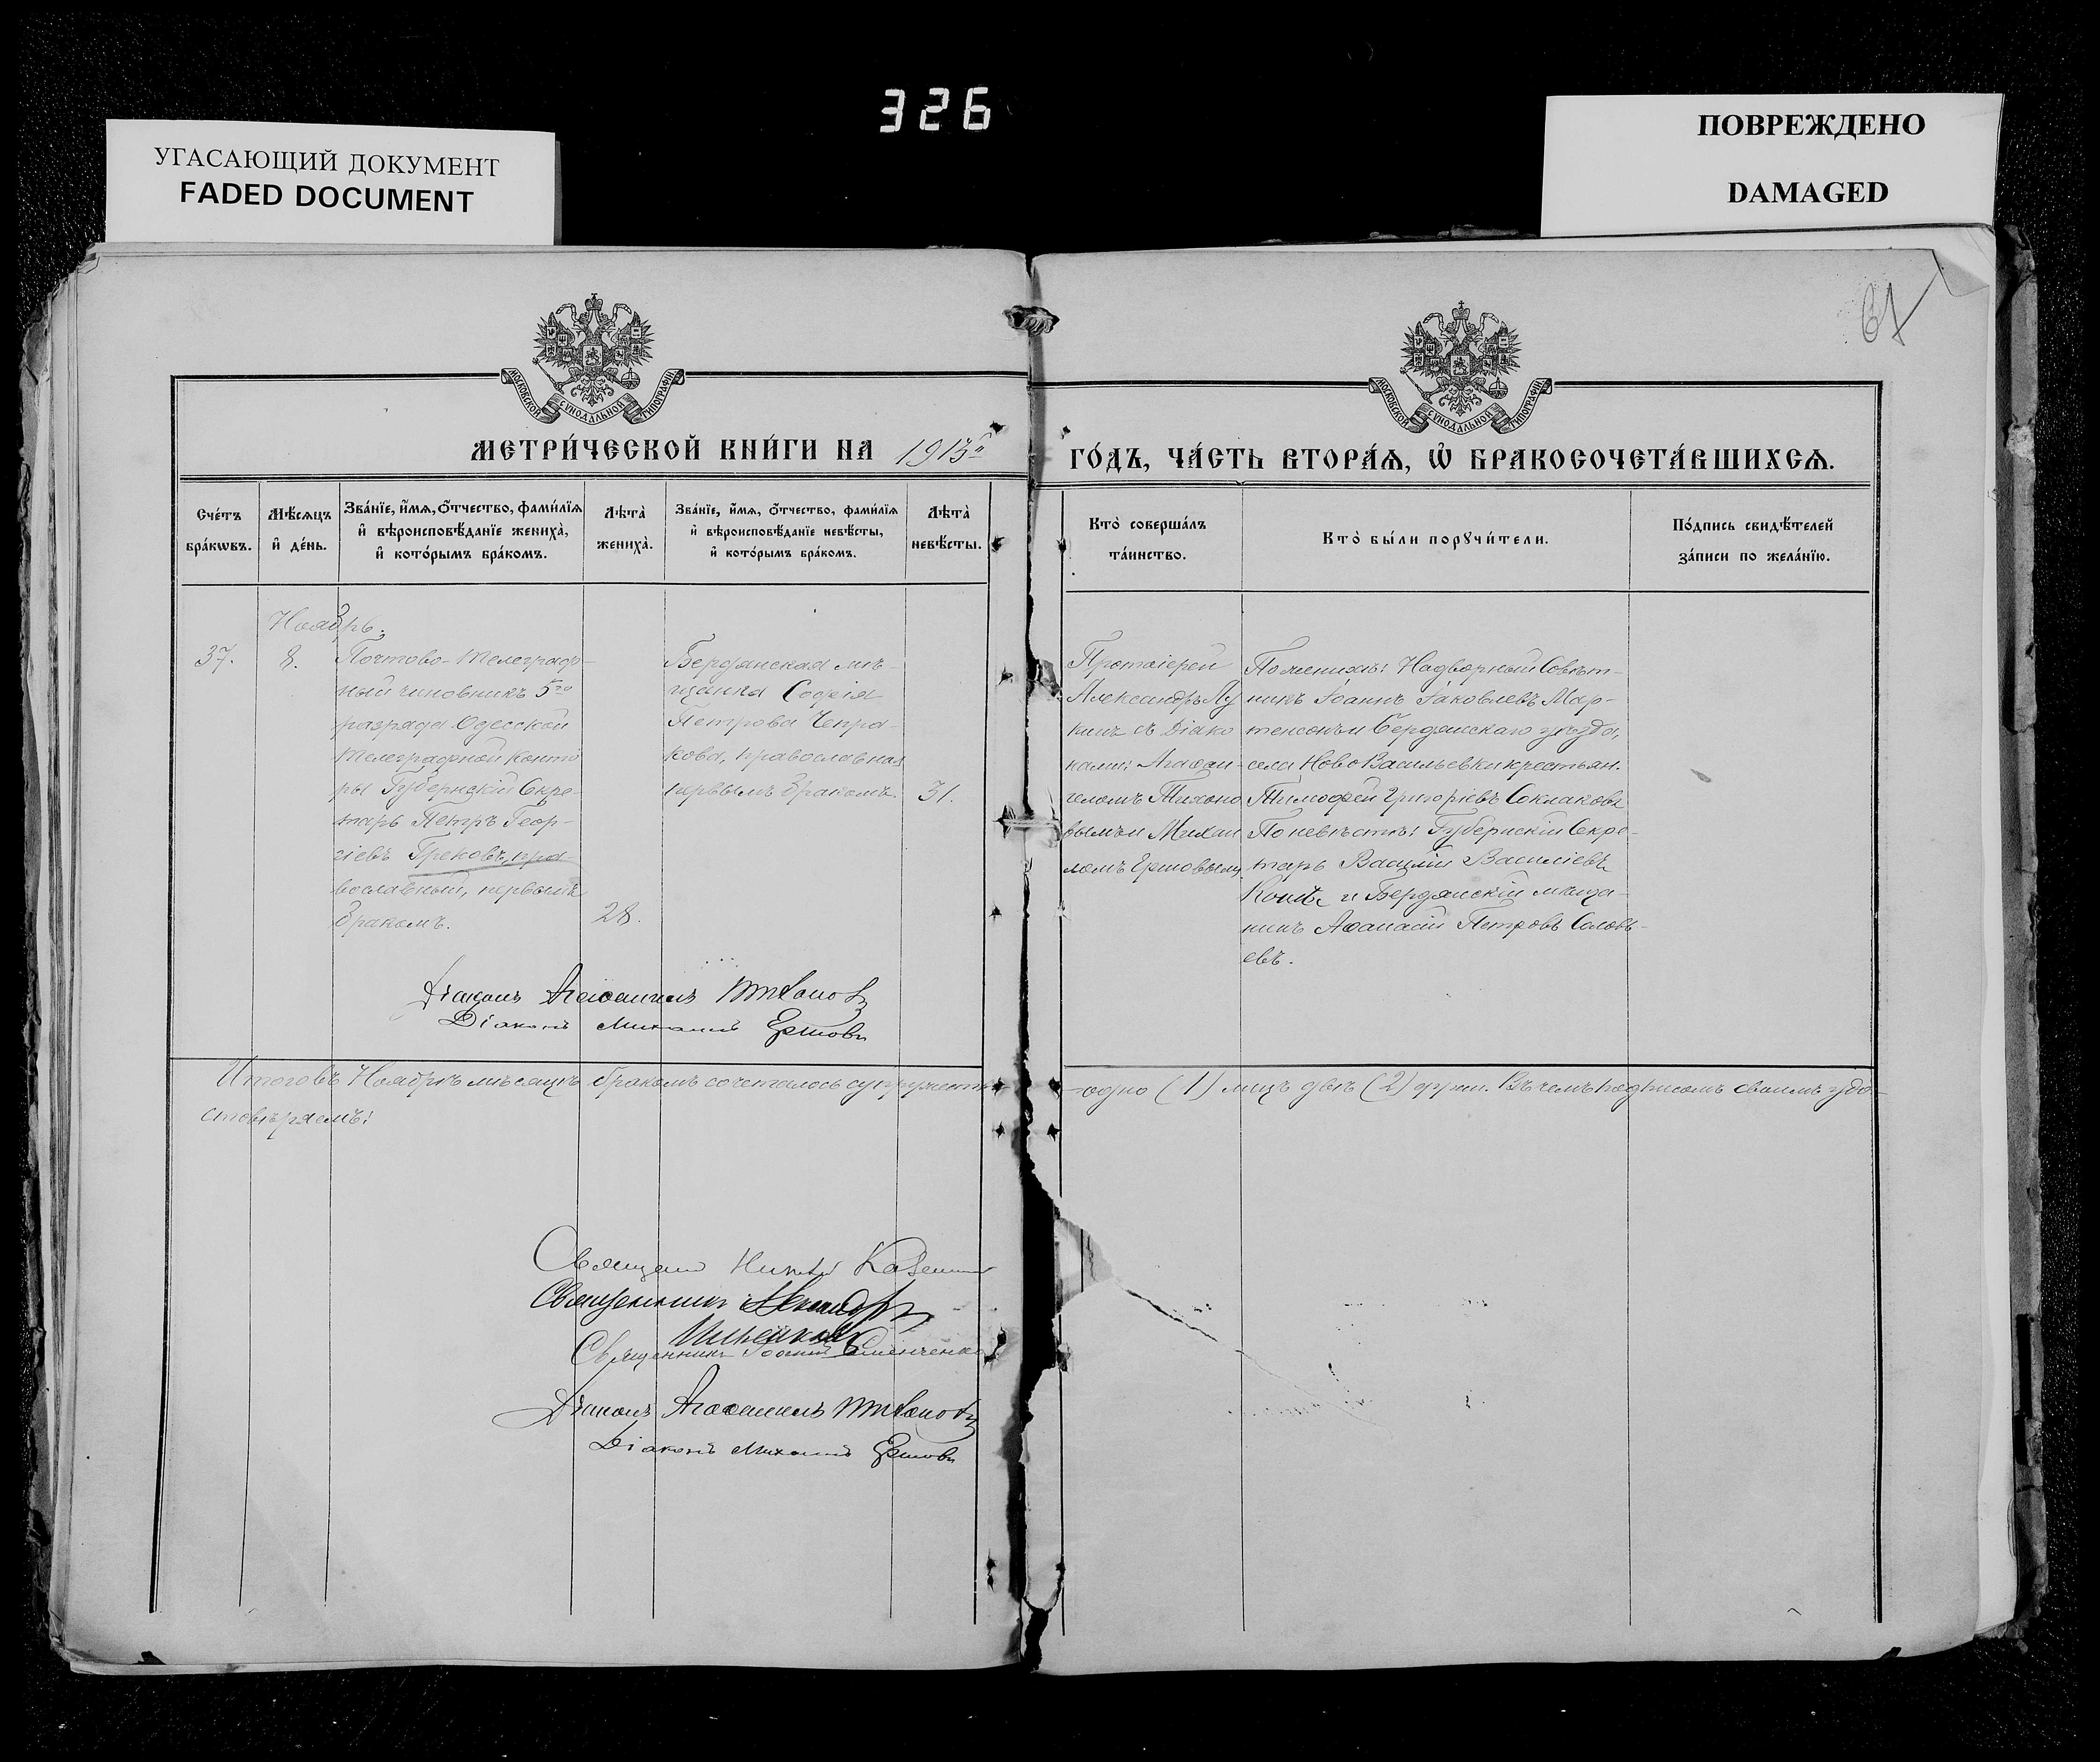 326
УГАСАЮЩИЙ ДОКУМЕНТ
FADED DOCUMENT
ПОВРЕЖДЕНО
DAMAGED
61
МОСКОВСКОЙ СУНОДАЛЬНОЙ ТИПОГРАФІИ
МОСКОВСКОЙ СУНОДАЛЬНОЙ ТИПОГРАФІИ
МЕТРИ́ЧЕСКОЙ КНИ́ГИ НА 1913го
ГО́ДЪ, ЧА́СТЬ ВТОРА́Ѧ, Ѡ҆ БРАКОСОЧЕТА́ВШИХСѦ.
Сче́тъ
бра́кѡвъ.
Мѣ́сѧцъ
и҆ де́нь.
Зва́нїе, и҆́мѧ, ѻ҆́тчество, фами́лїѧ
и҆ вѣроисповѣ́данїе жениха̀,
и҆ кото́рымъ бра́комъ.
Лѣта̀
жениха̀.
Зва́нїе, и҆́мѧ, ѻ҆́тчество, фами́лїѧ
и҆ вѣроисповѣ́данїе невѣ́сты,
и҆ кото́рымъ бра́комъ.
Лѣта̀
невѣ́сты.
Кто̀ соверша́лъ
та́инство.
Кто̀ бы́ли порꙋчи́тели.
По́дпись свидѣ́телей
за́писи по жела́нїю.
Ноябрь.
37.
8.
Почтово-Телеграф-
ный чиновникъ 5го
разряда Одесской
Телеграфной конто
ры Губернскій Секре-
тарь Петръ Геор-
гіевъ Грековъ, пра-
вославный, первымъ
бракомъ.
28.
Бердянская мѣ-
щанка Софія
Петрова Чепра-
кова, православная
первымъ бракомъ.
31.
Протоіерей
Александръ Лу
кинъ съ Діако
нами: Агаѳан-
геломъ Тихоно
вымъ и Михаи
ломъ Ершовымъ.
По женихѣ: Надворный Совѣт-
никъ Іоаннъ Іаковлевъ Мар-
тенсонъ и Бердянскаго уѣзда,
села Ново Васильевки крестьян.
Тимоѳей Григоріевъ Соклаковъ
По невѣстѣ: Губернскій Секре-
тарь Василій Василіевъ
и Бердянскій мѣща-
нинъ Аѳанасій Петровъ Соловь-
евъ.
Діаконъ Агаѳангелъ Тихоновъ
Діаконъ Михаилъ Ершовъ
Итого въ Ноябрѣ мѣсяцѣ бракомъ сочеталось супружествъ
одно (1) лицъ двѣ (2) души. Въ чемъ подписомъ своимъ удо-
стовѣряемъ:
Священникъ
Священникъ Александръ
Священникъ
Діаконъ Агаѳангелъ Тихоновъ
Діаконъ Михаилъ Ершовъ